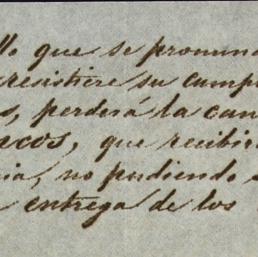 llo que se pronun
resistiere su cump
s, perderá la can
acos, que recibir
ia, no pudiendo
entrega de los